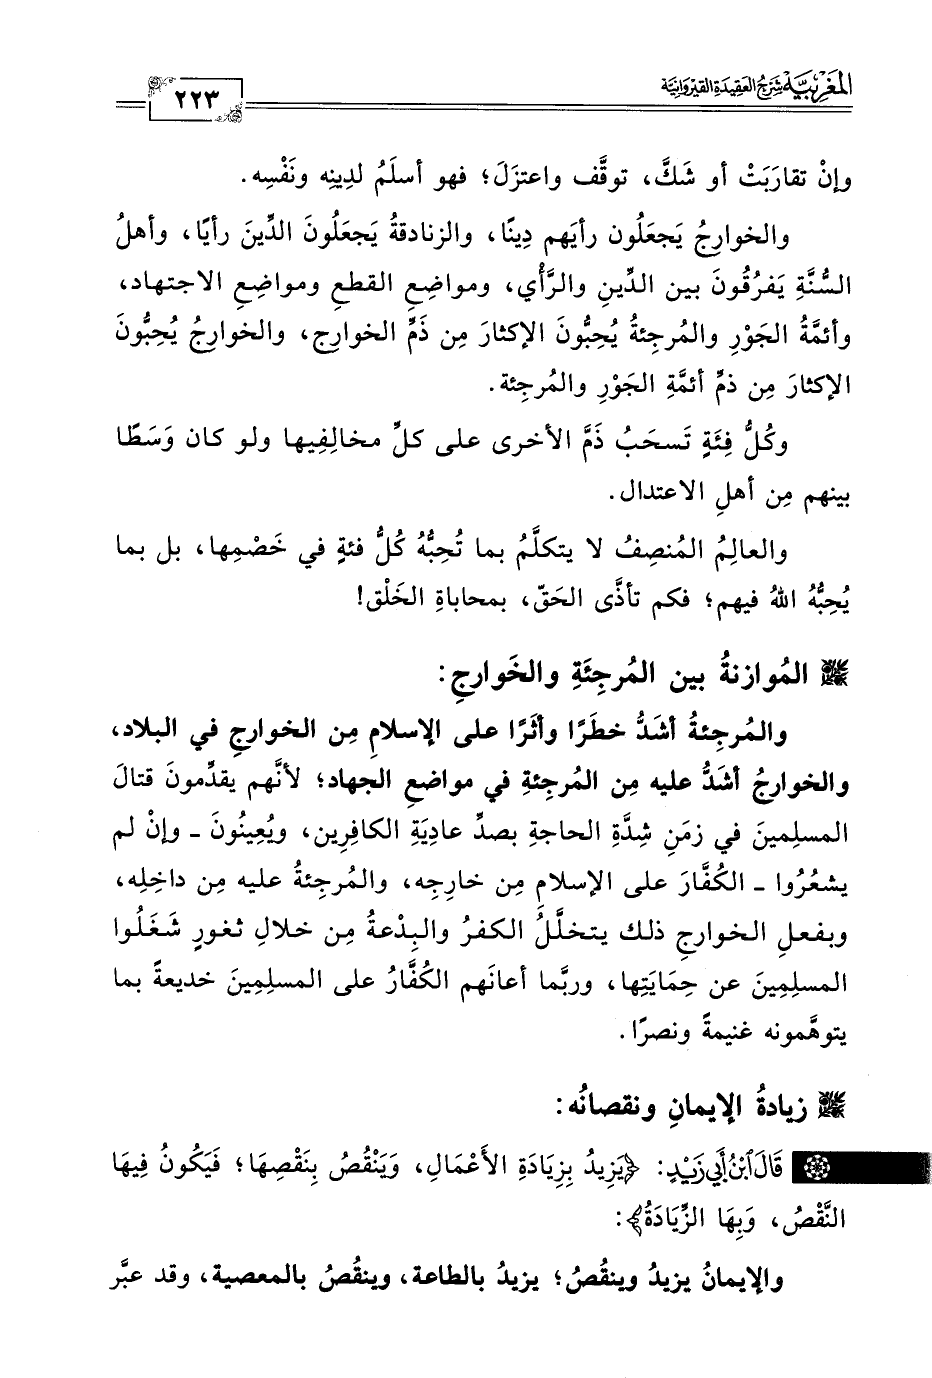 المغربية شرح العقيدة القيروانية
٢٢٣
وإنْ تقارَبَتْ أو شَكَّ، توقَّف واعتزَلَ؛ فهو أسلَمُ لدِينِه ونَفْسِه.
والخوارجُ يَجعَلُون رأيَهم دِينًا، والزنادقةُ يَجعَلُونَ الدِّينَ رأيًا، وأهلُ
السُّنَّةِ يَفرُقُونَ بين الدِّينِ والرَّأْي، ومواضِعِ القطعِ ومواضِعِ الاجتهاد،
وأئمَّةُ الجَوْرِ والمُرجِئةُ يُحِبُّونَ الإكثارَ مِن ذَمِّ الخوارج، والخوارجُ يُحِبُّونَ
الإكثارَ مِن ذمِّ أئمَّةِ الجَوْرِ والمُرجِئة.
وكُلُّ فِئَةٍ تَسحَبُ ذَمَّ الأخرى على كلِّ مخالِفِيها ولو كان وَسَطًا
بينهم مِن أهلِ الاعتدال.
والعالِمُ المُنصِفُ لا يتكلَّمُ بما تُحِبُّهُ كُلُّ فئةٍ في خَصْمِها، بل بما
يُحِبُّهُ اللهُ فيهم؛ فكم تأذَّى الحَقّ، بمحاباةِ الخَلْق!
المُوازنةُ بين المُرجِئَةِ والخَوارجِ:
والمُرجِئةُ أشَدُّ خطَرًا وأثَرًا على الإسلامِ مِن الخوارجِ في البلاد،
والخوارجُ أشَدُّ عليه مِن المُرجِئةِ في مواضعِ الجهاد؛ لأنَّهم يقدِّمونَ قتالَ
المسلِمينَ في زمَنِ شِدَّةِ الحاجةِ بصدِّ عاديَةِ الكافرِين، ويُعِينُونَ - وإنْ لم
يشعُرُوا - الكُفَّارَ على الإسلامِ مِن خارجِه، والمُرجئةُ عليه مِن داخِلِه،
وبفعلِ الخوارجِ ذلك يتخلَّلُ الكفرُ والبِدْعةُ مِن خلالِ ثغورٍ شَغَلُوا
المسلِمِينَ عن حِمَايَتِها، وربَّما أعانَهم الكُفَّارُ على المسلِمِينَ خديعةً بما
يتوهَّمونه غنيمةً ونصرًا.
زيادةُ الإيمانِ ونقصانُه:
قَالَ ٱبْنُ أَبِي زَيْدٍ: ﴿يَزِيدُ بِزِيَادَةِ الأَعْمَالِ، وَيَنْقُصُ بِنَقْصِهَا؛ فَيَكُونُ فِيهَا
النَّقْصُ، وَبِهَا الزِّيَادَةُ﴾:
والإيمانُ يزيدُ وينقُصُ؛ يزيدُ بالطاعة، وينقُصُ بالمعصية، وقد عبَّر